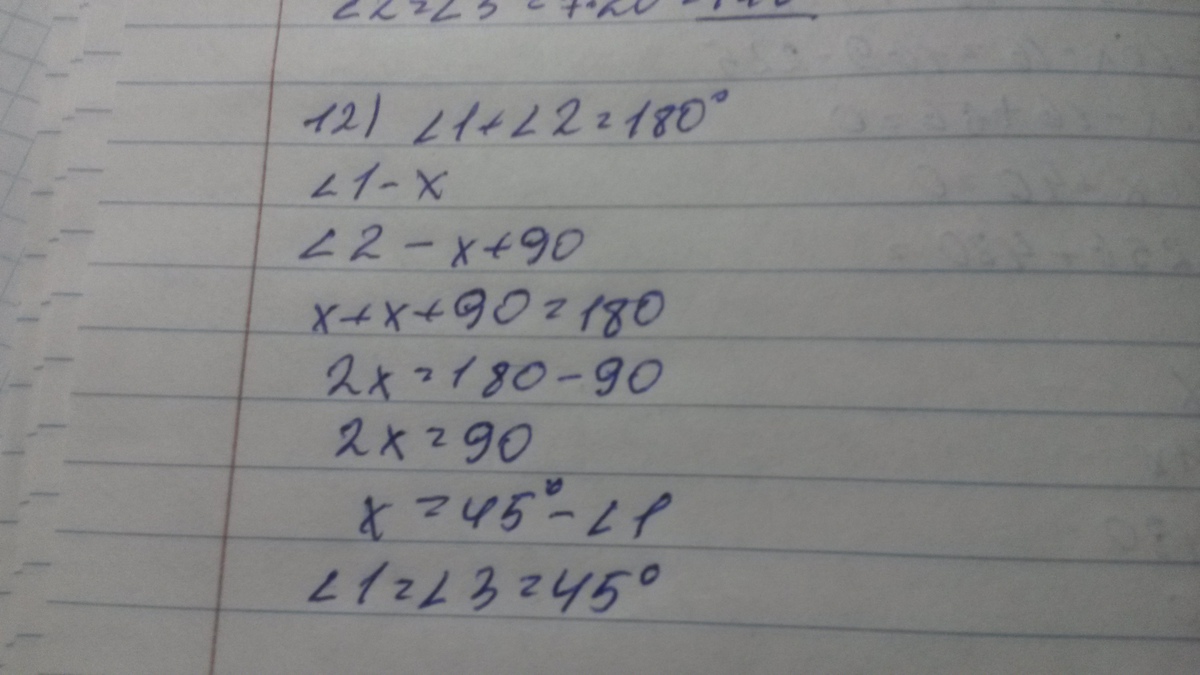 ∠2=∠3=7·20=140
12) ∠1+∠2=180°
∠1-x
∠2-x+90
x+x+90=180
2x=180-90
2x=90
x=45°-∠1
∠1=∠3=45°